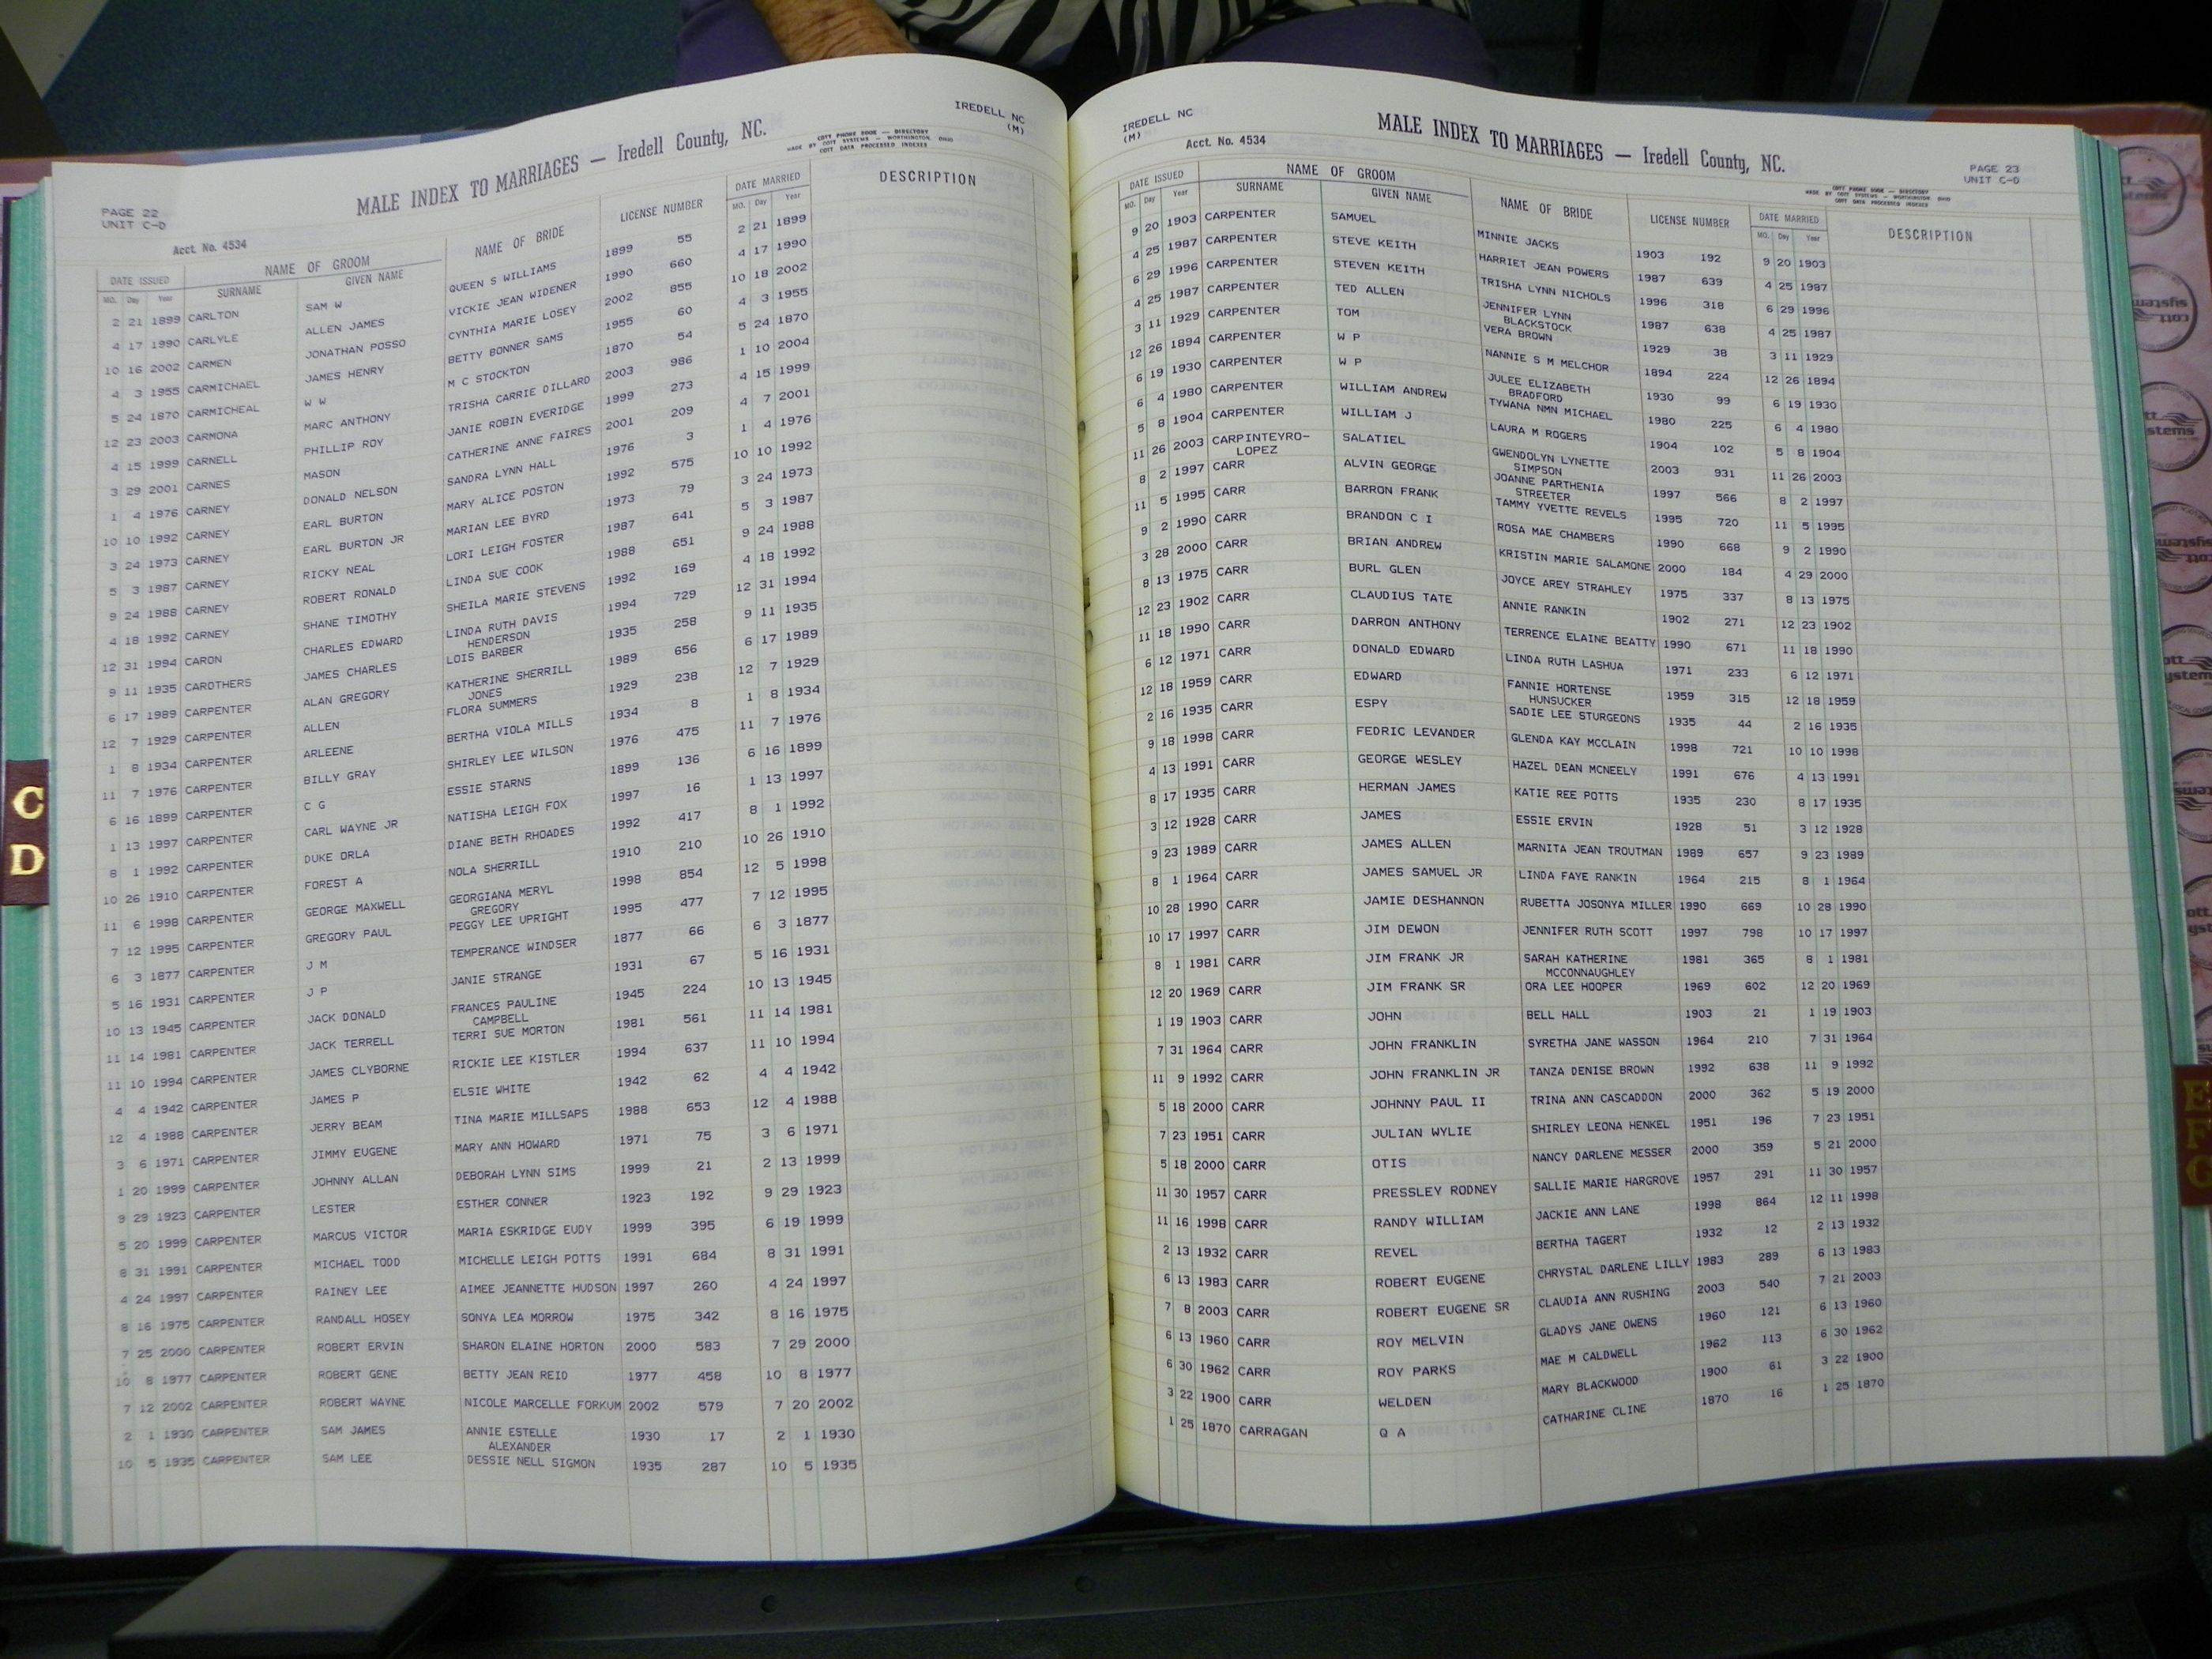 IREDELL NC
(M)
MALE INDEX TO MARRIAGES — Iredell County, NC.
COTT PHONE BOOK — DIRECTORY
MADE BY COTT SYSTEMS — WORTHINGTON, OHIO
COTT DATA PROCESSED INDEXES
PAGE 22
UNIT C-D
Acct. No. 4534
DATE ISSUED NAME OF GROOM NAME OF BRIDE LICENSE NUMBER DATE MARRIED DESCRIPTION
MO. Day Year SURNAME GIVEN NAME MO. Day Year
2 21 1899 CARLTON SAM W QUEEN S WILLIAMS 1899 55 2 21 1899
4 17 1990 CARLYLE ALLEN JAMES VICKIE JEAN WIDENER 1990 660 4 17 1990
10 16 2002 CARMEN JONATHAN POSSO CYNTHIA MARIE LOSEY 2002 855 10 18 2002
4 3 1955 CARMICHAEL JAMES HENRY BETTY BONNER SAMS 1955 60 4 3 1955
5 24 1870 CARMICHEAL W W M C STOCKTON 1870 54 5 24 1870
12 23 2003 CARMONA MARC ANTHONY TRISHA CARRIE DILLARD 2003 986 1 10 2004
4 15 1999 CARNELL PHILLIP ROY JANIE ROBIN EVERIDGE 1999 273 4 15 1999
3 29 2001 CARNES MASON CATHERINE ANNE FAIRES 2001 209 4 7 2001
1 4 1976 CARNEY DONALD NELSON SANDRA LYNN HALL 1976 3 1 4 1976
10 10 1992 CARNEY EARL BURTON MARY ALICE POSTON 1992 575 10 10 1992
3 24 1973 CARNEY EARL BURTON JR MARIAN LEE BYRD 1973 79 3 24 1973
5 3 1987 CARNEY RICKY NEAL LORI LEIGH FOSTER 1987 641 5 3 1987
9 24 1988 CARNEY ROBERT RONALD LINDA SUE COOK 1988 651 9 24 1988
4 18 1992 CARNEY SHANE TIMOTHY SHEILA MARIE STEVENS 1992 169 4 18 1992
12 31 1994 CARON CHARLES EDWARD LINDA RUTH DAVIS 1994 729 12 31 1994
HENDERSON
9 11 1935 CAROTHERS JAMES CHARLES LOIS BARBER 1935 258 9 11 1935
6 17 1989 CARPENTER ALAN GREGORY KATHERINE SHERRILL 1989 656 6 17 1989
JONES
12 7 1929 CARPENTER ALLEN FLORA SUMMERS 1929 238 12 7 1929
1 8 1934 CARPENTER ARLEENE BERTHA VIOLA MILLS 1934 8 1 8 1934
11 7 1976 CARPENTER BILLY GRAY SHIRLEY LEE WILSON 1976 475 11 7 1976
6 16 1899 CARPENTER C G ESSIE STARNS 1899 136 6 16 1899
1 13 1997 CARPENTER CARL WAYNE JR NATISHA LEIGH FOX 1997 16 1 13 1997
8 1 1992 CARPENTER DUKE ORLA DIANE BETH RHOADES 1992 417 8 1 1992
10 26 1910 CARPENTER FOREST A NOLA SHERRILL 1910 210 10 26 1910
11 6 1998 CARPENTER GEORGE MAXWELL GEORGIANA MERYL 1998 854 12 5 1998
GREGORY
7 12 1995 CARPENTER GREGORY PAUL PEGGY LEE UPRIGHT 1995 477 7 12 1995
6 3 1877 CARPENTER J M TEMPERANCE WINDSER 1877 66 6 3 1877
5 16 1931 CARPENTER J P JANIE STRANGE 1931 67 5 16 1931
10 13 1945 CARPENTER JACK DONALD FRANCES PAULINE 1945 224 10 13 1945
CAMPBELL
11 14 1981 CARPENTER JACK TERRELL TERRI SUE MORTON 1981 561 11 14 1981
11 10 1994 CARPENTER JAMES CLYBORNE RICKIE LEE KISTLER 1994 637 11 10 1994
4 4 1942 CARPENTER JAMES P ELSIE WHITE 1942 62 4 4 1942
12 4 1988 CARPENTER JERRY BEAM TINA MARIE MILLSAPS 1988 653 12 4 1988
3 6 1971 CARPENTER JIMMY EUGENE MARY ANN HOWARD 1971 75 3 6 1971
1 20 1999 CARPENTER JOHNNY ALLAN DEBORAH LYNN SIMS 1999 21 2 13 1999
9 29 1923 CARPENTER LESTER ESTHER CONNER 1923 192 9 29 1923
5 20 1999 CARPENTER MARCUS VICTOR MARIA ESKRIDGE EUDY 1999 395 6 19 1999
8 31 1991 CARPENTER MICHAEL TODD MICHELLE LEIGH POTTS 1991 684 8 31 1991
4 24 1997 CARPENTER RAINEY LEE AIMEE JEANNETTE HUDSON 1997 260 4 24 1997
8 16 1975 CARPENTER RANDALL HOSEY SONYA LEA MORROW 1975 342 8 16 1975
7 25 2000 CARPENTER ROBERT ERVIN SHARON ELAINE HORTON 2000 583 7 29 2000
10 8 1977 CARPENTER ROBERT GENE BETTY JEAN REID 1977 458 10 8 1977
7 12 2002 CARPENTER ROBERT WAYNE NICOLE MARCELLE FORKUM 2002 579 7 20 2002
2 1 1930 CARPENTER SAM JAMES ANNIE ESTELLE 1930 17 2 1 1930
ALEXANDER
10 5 1935 CARPENTER SAM LEE DESSIE NELL SIGMON 1935 287 10 5 1935
C
D
IREDELL NC
(M)
MALE INDEX TO MARRIAGES — Iredell County, NC.
Acct. No. 4534
PAGE 23
UNIT C-D
COTT PHONE BOOK — DIRECTORY
MADE BY COTT SYSTEMS — WORTHINGTON, OHIO
COTT DATA PROCESSED INDEXES
DATE ISSUED NAME OF GROOM NAME OF BRIDE LICENSE NUMBER DATE MARRIED DESCRIPTION
MO. Day Year SURNAME GIVEN NAME MO. Day Year
9 20 1903 CARPENTER SAMUEL MINNIE JACKS 1903 192 9 20 1903
4 25 1987 CARPENTER STEVE KEITH HARRIET JEAN POWERS 1987 639 4 25 1987
6 29 1996 CARPENTER STEVEN KEITH TRISHA LYNN NICHOLS 1996 318 6 29 1996
4 25 1987 CARPENTER TED ALLEN JENNIFER LYNN 1987 638 4 25 1987
BLACKSTOCK
3 11 1929 CARPENTER TOM VERA BROWN 1929 38 3 11 1929
12 26 1894 CARPENTER W P NANNIE S M MELCHOR 1894 224 12 26 1894
6 19 1930 CARPENTER W P JULEE ELIZABETH 1930 99 6 19 1930
BRADFORD
6 4 1980 CARPENTER WILLIAM ANDREW TYWANA NMN MICHAEL 1980 225 6 4 1980
5 8 1904 CARPENTER WILLIAM J LAURA M ROGERS 1904 102 5 8 1904
11 26 2003 CARPINTEYRO- SALATIEL GWENDOLYN LYNETTE 2003 931 11 26 2003
LOPEZ SIMPSON
8 2 1997 CARR ALVIN GEORGE JOANNE PARTHENIA 1997 566 8 2 1997
STREETER
11 5 1995 CARR BARRON FRANK TAMMY YVETTE REVELS 1995 720 11 5 1995
9 2 1990 CARR BRANDON C I ROSA MAE CHAMBERS 1990 668 9 2 1990
3 28 2000 CARR BRIAN ANDREW KRISTIN MARIE SALAMONE 2000 184 4 29 2000
8 13 1975 CARR BURL GLEN JOYCE AREY STRAHLEY 1975 337 8 13 1975
12 23 1902 CARR CLAUDIUS TATE ANNIE RANKIN 1902 271 12 23 1902
11 18 1990 CARR DARRON ANTHONY TERRENCE ELAINE BEATTY 1990 671 11 18 1990
6 12 1971 CARR DONALD EDWARD LINDA RUTH LASHUA 1971 233 6 12 1971
12 18 1959 CARR EDWARD FANNIE HORTENSE 1959 315 12 18 1959
HUNSUCKER
2 16 1935 CARR ESPY SADIE LEE STURGEONS 1935 44 2 16 1935
9 18 1998 CARR FEDRIC LEVANDER GLENDA KAY MCCLAIN 1998 721 10 10 1998
4 13 1991 CARR GEORGE WESLEY HAZEL DEAN MCNEELY 1991 676 4 13 1991
8 17 1935 CARR HERMAN JAMES KATIE REE POTTS 1935 230 8 17 1935
3 12 1928 CARR JAMES ESSIE ERVIN 1928 51 3 12 1928
9 23 1989 CARR JAMES ALLEN MARNITA JEAN TROUTMAN 1989 657 9 23 1989
8 1 1964 CARR JAMES SAMUEL JR LINDA FAYE RANKIN 1964 215 8 1 1964
10 28 1990 CARR JAMIE DESHANNON RUBETTA JOSONYA MILLER 1990 669 10 28 1990
10 17 1997 CARR JIM DEWON JENNIFER RUTH SCOTT 1997 798 10 17 1997
8 1 1981 CARR JIM FRANK JR SARAH KATHERINE 1981 365 8 1 1981
MCCONNAUGHLEY
12 20 1969 CARR JIM FRANK SR ORA LEE HOOPER 1969 602 12 20 1969
1 19 1903 CARR JOHN BELL HALL 1903 21 1 19 1903
7 31 1964 CARR JOHN FRANKLIN SYRETHA JANE WASSON 1964 210 7 31 1964
11 9 1992 CARR JOHN FRANKLIN JR TANZA DENISE BROWN 1992 638 11 9 1992
5 18 2000 CARR JOHNNY PAUL II TRINA ANN CASCADDON 2000 362 5 19 2000
7 23 1951 CARR JULIAN WYLIE SHIRLEY LEONA HENKEL 1951 196 7 23 1951
5 18 2000 CARR OTIS NANCY DARLENE MESSER 2000 359 5 21 2000
11 30 1957 CARR PRESSLEY RODNEY SALLIE MARIE HARGROVE 1957 291 11 30 1957
11 16 1998 CARR RANDY WILLIAM JACKIE ANN LANE 1998 864 12 11 1998
2 13 1932 CARR REVEL BERTHA TAGERT 1932 12 2 13 1932
6 13 1983 CARR ROBERT EUGENE CHRYSTAL DARLENE LILLY 1983 289 6 13 1983
7 8 2003 CARR ROBERT EUGENE SR CLAUDIA ANN RUSHING 2003 540 7 21 2003
6 13 1960 CARR ROY MELVIN GLADYS JANE OWENS 1960 121 6 13 1960
6 30 1962 CARR ROY PARKS MAE M CALDWELL 1962 113 6 30 1962
3 22 1900 CARR WELDEN MARY BLACKWOOD 1900 61 3 22 1900
1 25 1870 CARRAGAN Q A CATHARINE CLINE 1870 16 1 25 1870
E
F
G